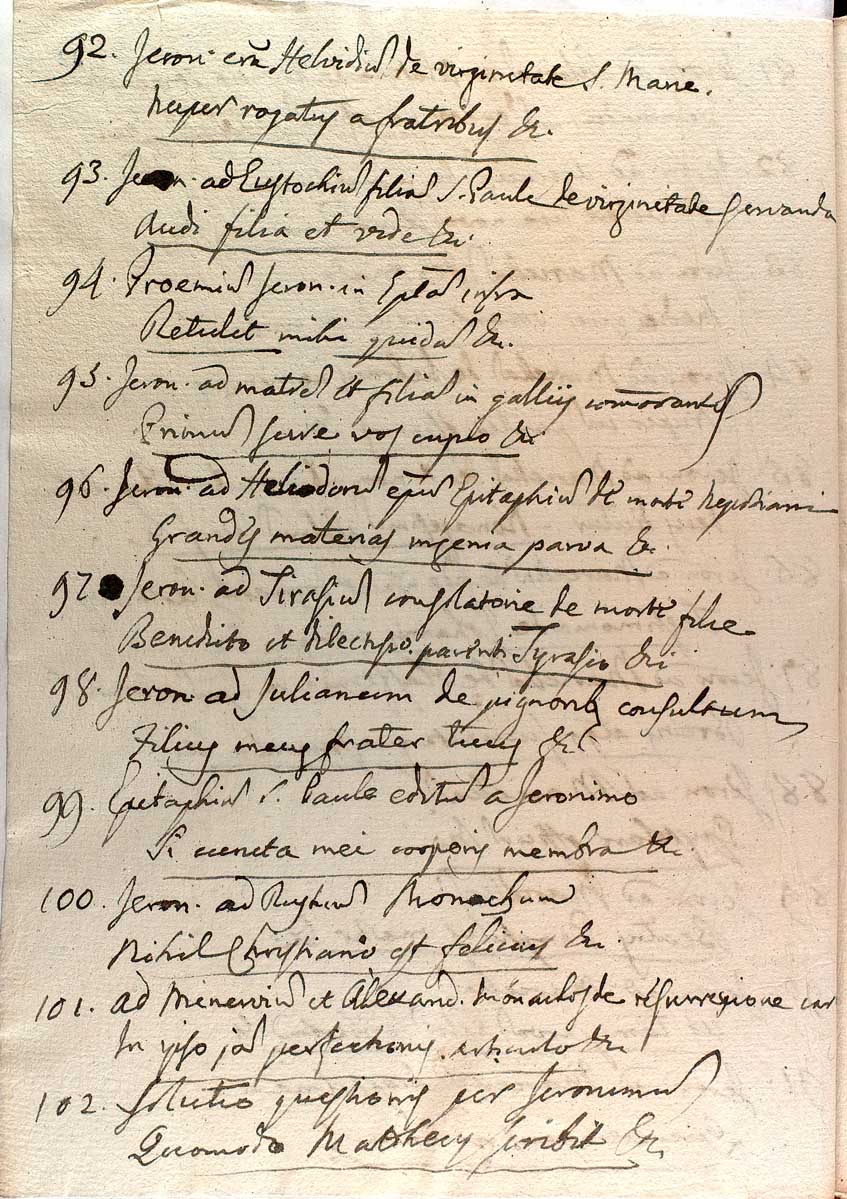 92. Jeron. cõn Helvidiũ de virginitate S. Marie.
Nuper rogatus a fratribus &c.
93. Jeron. ad Eustochiũ filiã S. Paule de virginitate servanda
Audi filia et vide &c.
94. Proemiũ Jeron. in Eplãs infra
Retulit mihi quidã &c.
95. Jeron. ad matrẽ et filiã in galliis comorantes
Primũ scire vos cupio &c
96. Jeron. ad Heliodorũ epũ Epitaphiũ de morte Nepotiani
Grandes materias ingenia parva &c.
97 Jeron. ad Tirasiũ consolatorie de morte filie
Benedicto et dilectiss. parenti Tyrasio &c.
98. Jeron. ad Julianum de pignorib consultum
Filius meus frater tuus &c
99. Epitaphiũ S. Paule editũ a Jeronimo
Si cuncta mei corporis membra &c.
100. Jeron. ad Rusticũ Monachum
Nihil Christiano est felicius &c.
101. ad Minerviũ et Alexand. monachos de resurrezione car
In ipso jã perfectionis articulo &c
102. Solutio questionis per Jeronimũ
Quomodo Matheus scribit &c.